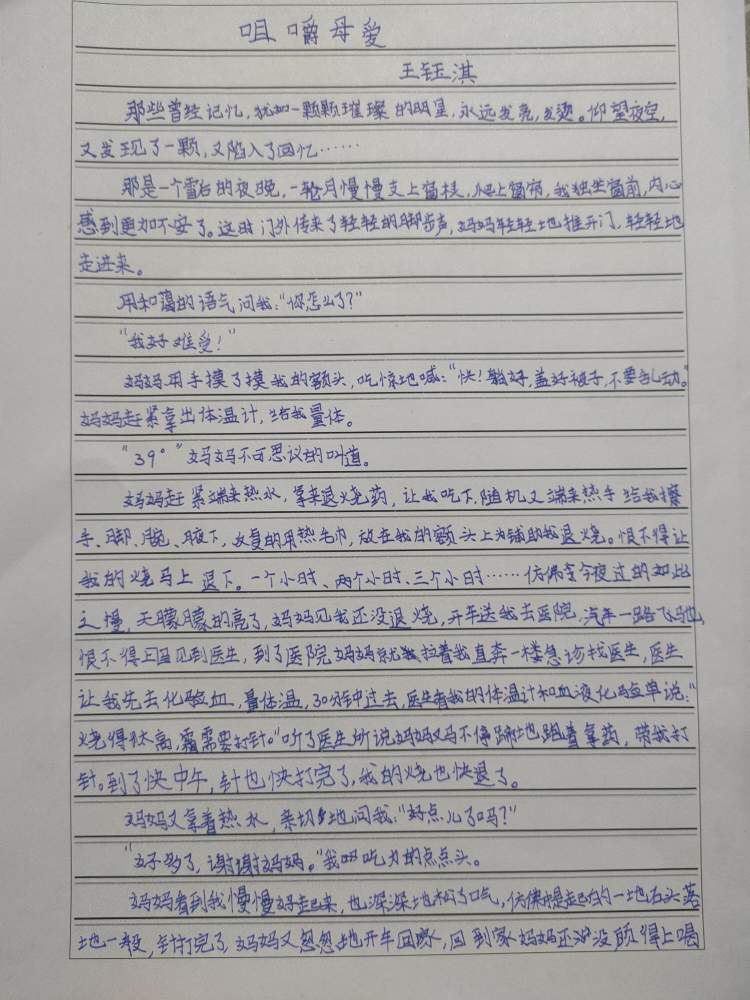 咀嚼母爱
王钰淇
那些曾经记忆,犹如一颗颗璀璨的明星,永远发亮,发烫。仰望夜空,
又发现了一颗,又陷入了回忆……
那是一个雪后的夜晚,一轮月慢慢支上窗棂,爬上窗帘,我独坐窗前,内心
感到更加不安了。这时门外传来了轻轻的脚步声,妈妈轻轻地推开门,轻轻地
走进来。
用和蔼的语气问我:“你怎么了?”
“我好难受!”
妈妈用手摸了摸我的额头,吃惊地喊:“快!躺好,盖好被子,不要乱动。”
妈妈赶紧拿出体温计,给我量体。
“39°”妈妈不可思议的叫道。
妈妈赶紧端来热水,拿来退烧药,让我吃下,随机又端来热手给我擦
手、脚、腕、腋下,反复的用热毛巾,放在我的额头上为辅助我退烧。恨不得让
我的烧马上退下。一个小时、两个小时、三个小时……仿佛今夜过的如此
之慢,天朦朦的亮了,妈妈见我还没退烧,开车送我去医院,汽车一路飞驰,
恨不得立马见到医生,到了医院妈妈就拉着我直奔一楼急诊找医生,医生
让我先去化验血,量体温,30分钟过去,医生看我的体温计和血液化验单说:“
烧得很高,需要打针。”听了医生所说妈妈又马不停蹄地跑着拿药,带我打
针。到了快中午,针也快打完了,我的烧也快退了。
妈妈又拿着热水,亲切地问我:“好点儿了吗?”
“好多了,谢谢妈妈。”我吃力的点点头。
妈妈看到我慢慢好起来,也深深地松了口气,仿佛悬起的一地石头落
地一般,针打完了,妈妈又匆匆地开车回家,回到家妈妈还没顾得上喝